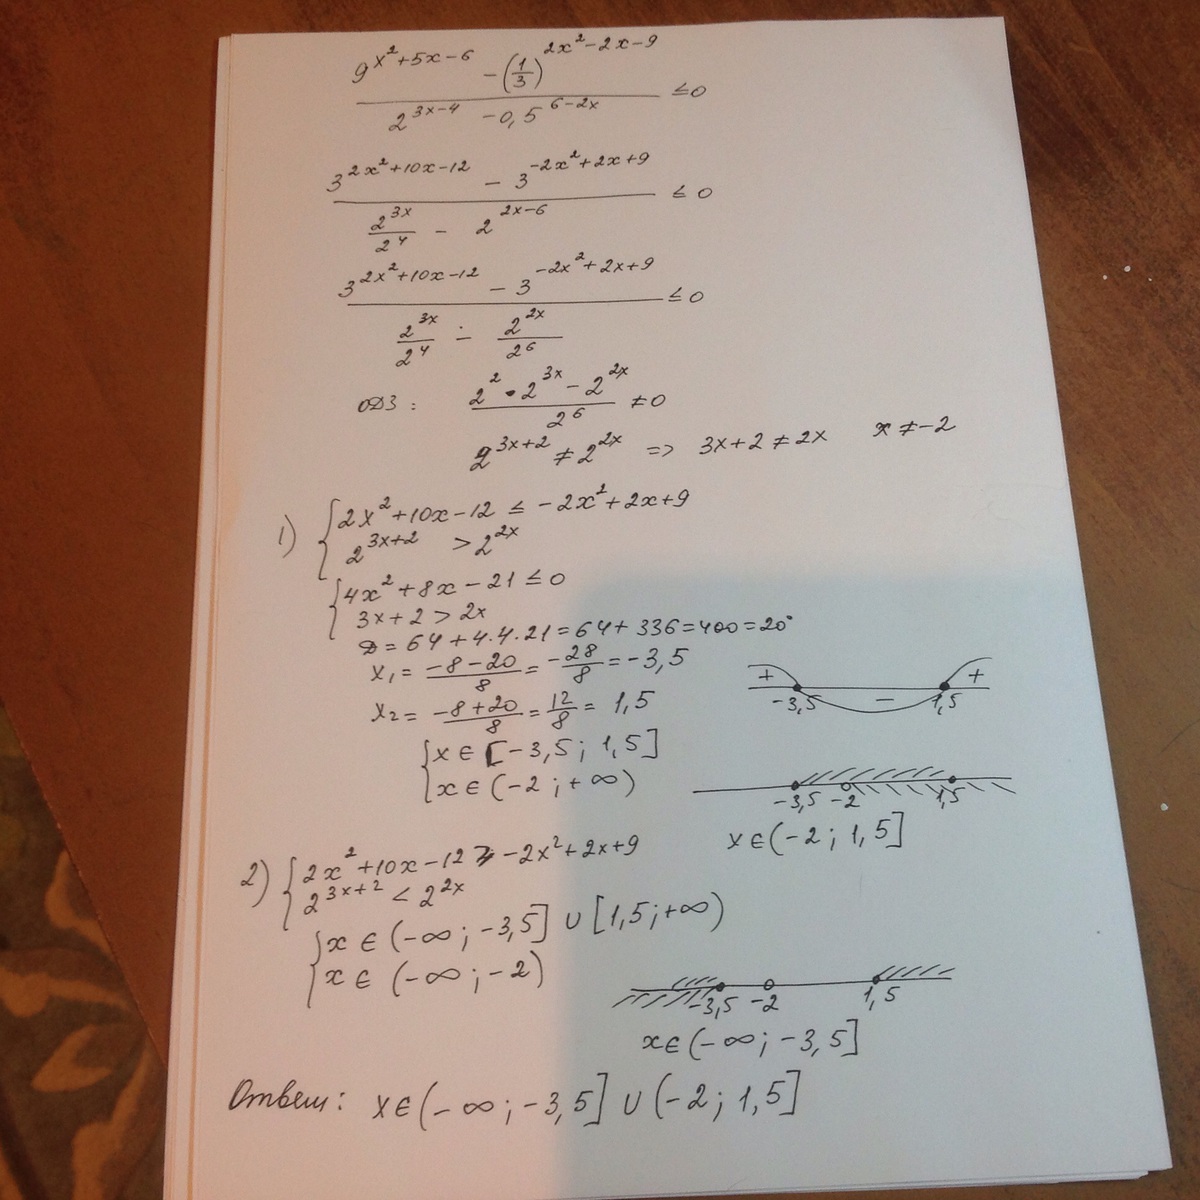 9^{x²+5x-6} - (1/3)^{2x²-2x-9} / 2^{3x-4} - 0,5^{6-2x} ≤0
3^{2x²+10x-12} - 3^{-2x²+2x+9} / 2^{3x}/2⁴ - 2^{2x-6} ≤ 0
3^{2x²+10x-12} - 3^{-2x²+2x+9} / 2^{3x}/2⁴ - 2^{2x}/2⁶ ≤0
ОДЗ: 2²·2^{3x} - 2^{2x} / 2⁶ ≠0
2^{3x+2} ≠ 2^{2x} => 3x+2 ≠ 2x x ≠ -2
1) { 2x²+10x-12 ≤ -2x²+2x+9
2^{3x+2} > 2^{2x}
{ 4x²+8x-21 ≤ 0
3x+2 > 2x
D = 64+4.4.21 = 64+336=400=20²
x₁ = -8-20/8 = -28/8 = -3,5
+ - +
-3,5 1,5
x₂ = -8+20/8 = 12/8 = 1,5
{ x ∈ [-3,5; 1,5]
x ∈ (-2; +∞)
-3,5 -2 1,5
x ∈ (-2; 1,5]
2) { 2x²+10x-12 ≥ -2x²+2x+9
2^{3x+2} < 2^{2x}
{ x ∈ (-∞; -3,5] ∪ [1,5; +∞)
x ∈ (-∞; -2)
-3,5 -2 1,5
x ∈ (-∞; -3,5]
Ответ: x ∈ (-∞; -3,5] ∪ (-2; 1,5]